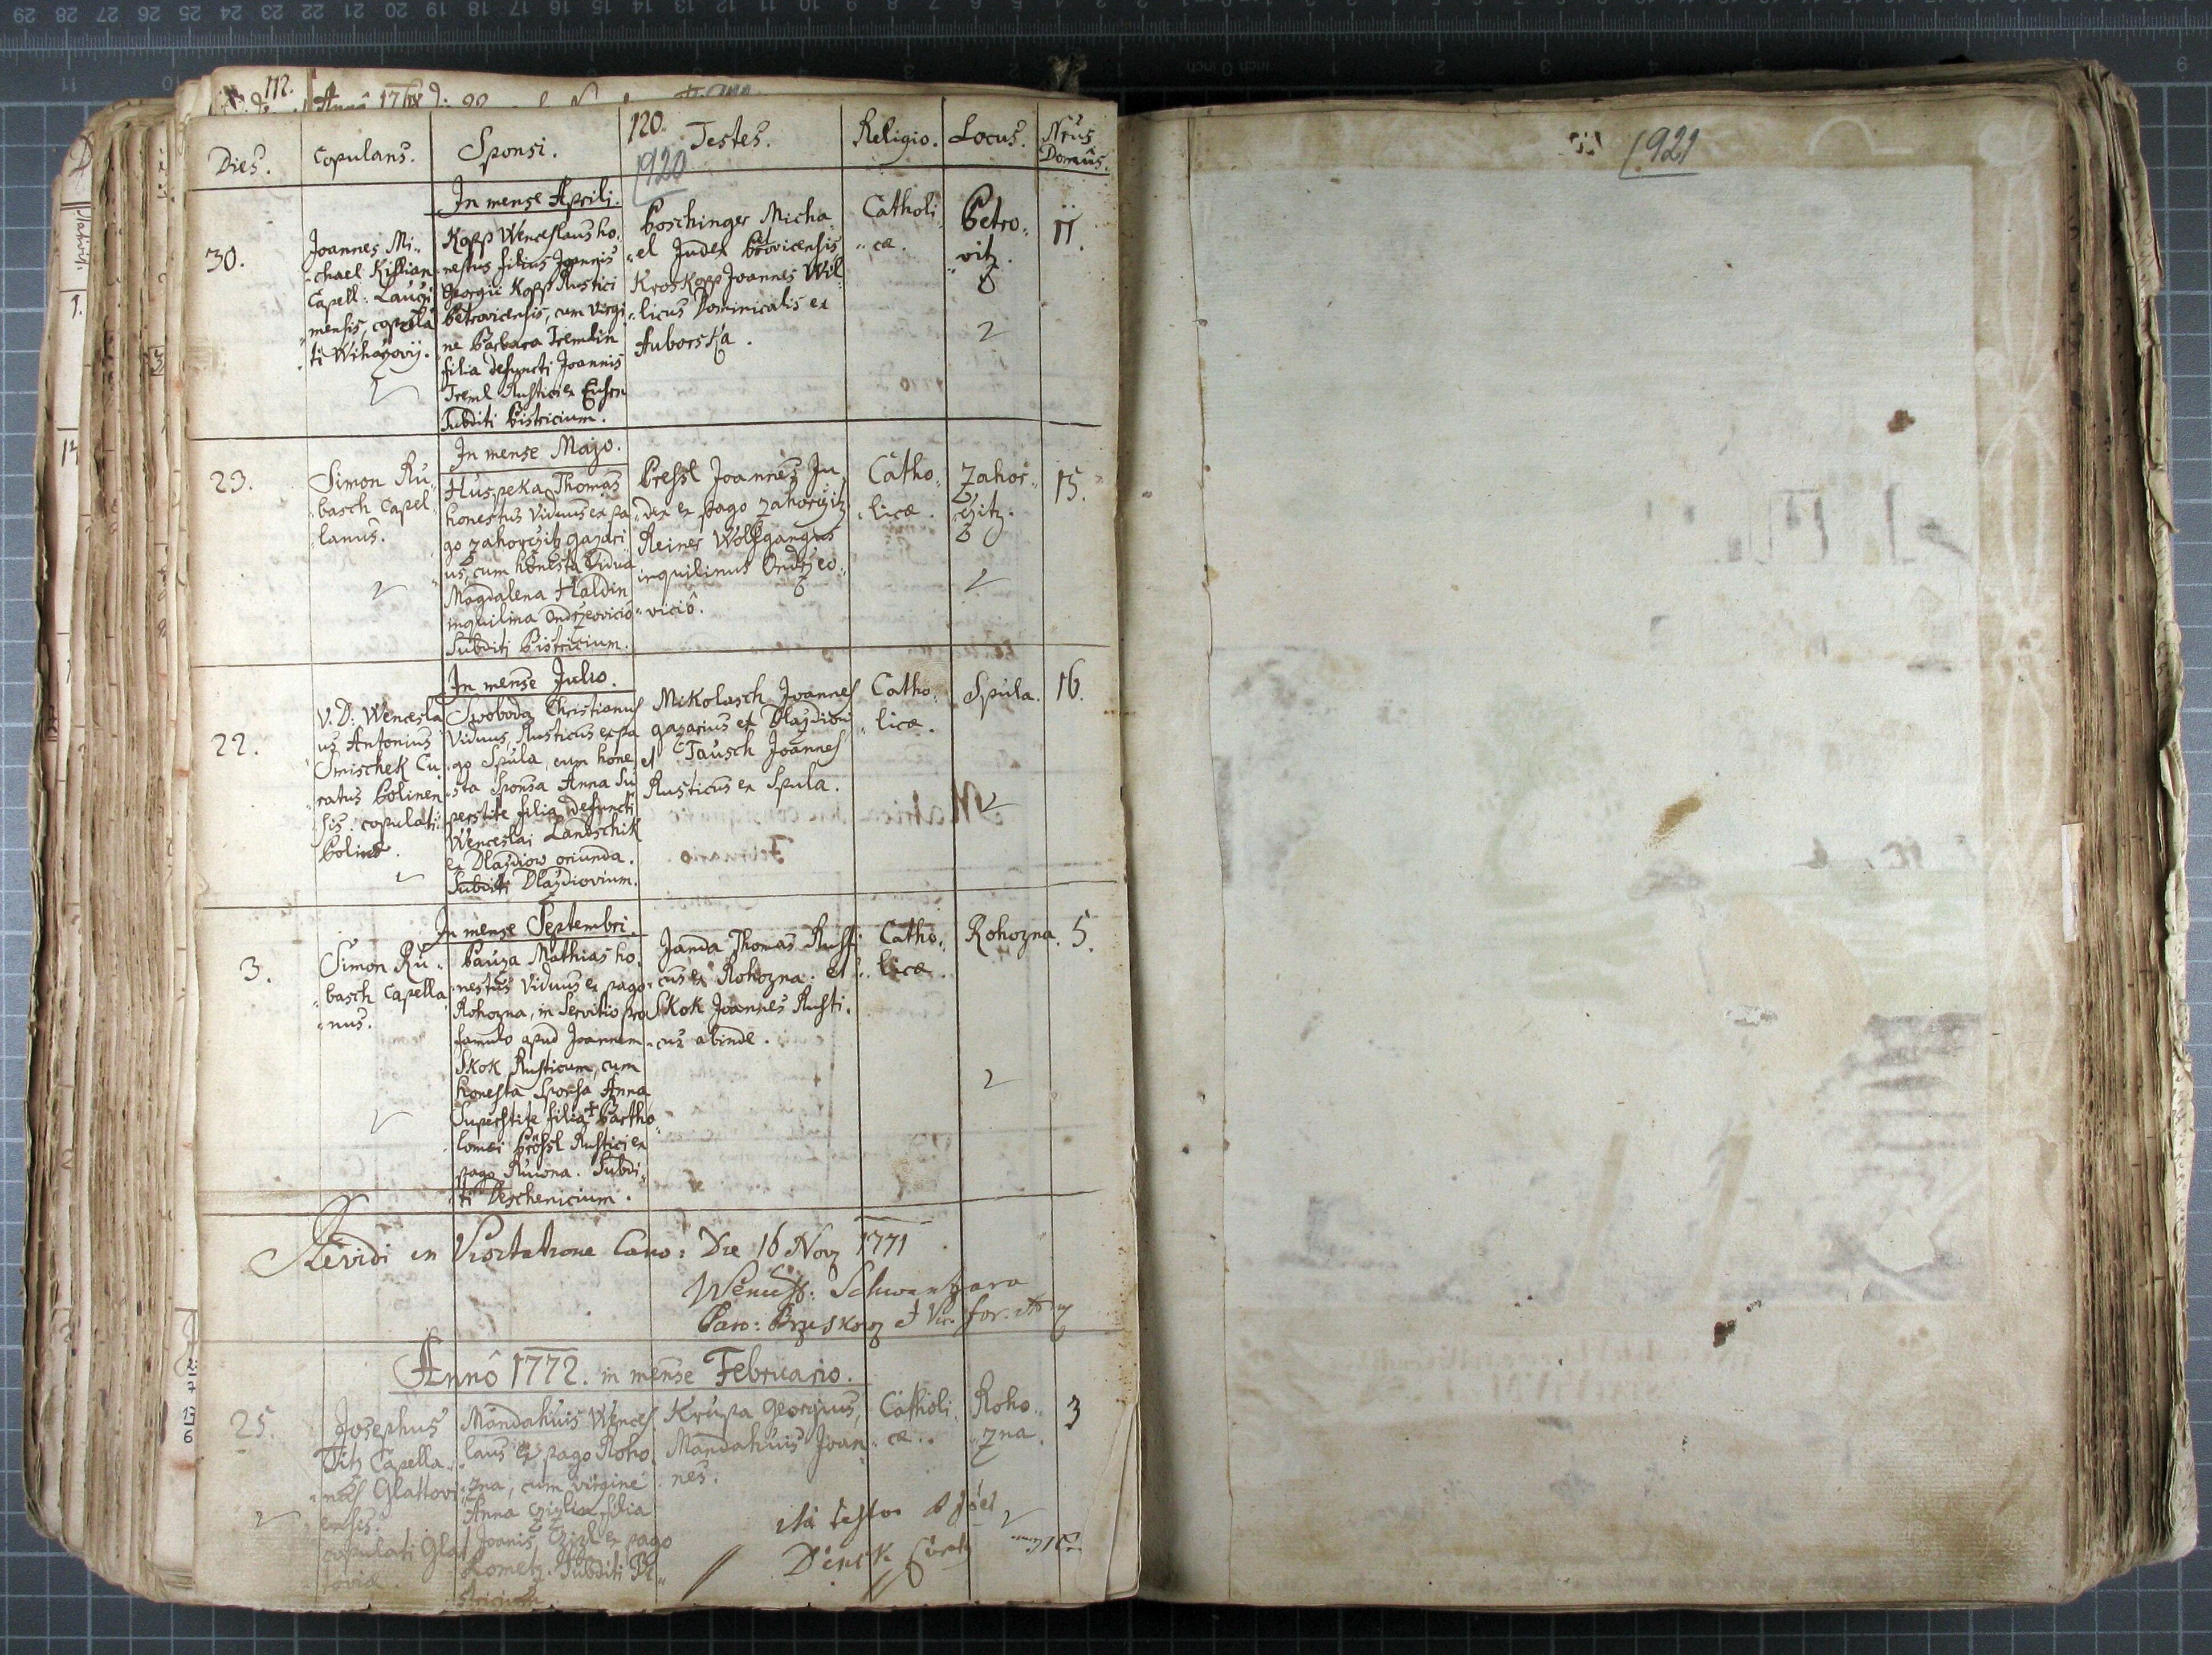 112.
Annô 1768
120.
920
921
Dies. Copulans. Sponsi. Testes. Religio. Locus. Nrus Domûs.
In mense Aprili.
30.
Joannes Mi-
chael Killian
Capell: Lauči
mensis, copula
ti Wihazovij.
Kopp Wenceslaus ho-
nestus filius Joannis
Georgii Kopp Rustici
Petrovicensis, cum virgi
ne Barbara Tremlin
filia defuncti Joannis
Treml Rustici ex
Subditi Bistricium.
Poschinger Micha
el Judex Petrovicensis
Kroskopp Joannes Wil
licus Dominicalis ex
Auborska.
Catholi
cæ.
Petro-
vitz.
11.
In mense Majo.
23.
Simon Ru-
basch Capel
lanus.
Huspeka Thomas
honestus Viduus ex pa
go Zahorczitz gazari
us, cum honesta Vidua
Magdalena Haldin
inquilina Ondrzeovicio
Subditi Bistricium.
Pressl Joannes Ju
dex ex pago Zahorczitz
Reiner Wolfgangus
inquilinus Ondrzeo-
viciô.
Catho-
licæ.
Zahor-
czitz.
15.
In mense Julio.
22.
V. D: Wencesla
us Antonius
Smischek Cu
ratus Polinen
sis. copulati
Polinæ.
Swoboda Christianus
Viduus, Rusticus ex pa
go Spula, cum hone
sta Sponsa Anna Su
perstite filia defuncti
Wenceslai Landschik
ex Dlazdiow oriunda.
Subditi Dlazdiovium.
Mikolasch Joannes
gazarius ex Dlazdiow
et Tausch Joannes
Rusticus ex Spula.
Catho-
licæ.
Spula.
16.
In mense Septembri.
3.
Simon Ru-
basch Capella
nus.
Pauza Mathias ho-
nestus Viduus ex pago
Rohozna, in Servitio pro
famulo apud Joannem
Skok Rusticum, cum
honesta Sponsa Anna
Superstite filia † Bartho
lomæi Prössl Rustici ex
pago Ruwna. Subdi-
ti Deschenicium.
Janda Thomas Rusti
cus ex Rohozna. et
Skok Joannes Rusti.
cus abinde.
Catho-
licæ.
Rohozna.
5.
Revidi in Visitatione Cano: Die 16 Nov 1771
Wencesl: Schwantzara
Paro: et Vic: for.
Annô 1772. in mense Februario.
25.
Josephus
Titz Capella-
nus Glattovi
ensis.
copulati Glat
toviæ.
Mandahuis Wences
laus ex pago Roho
zna, cum virgine
Anna Czizlin filia
Joanis Czizl ex pago
Kometz. Subditi Bi-
stricium.
Krupa Georgius,
Mandahuis Joan-
nes.
Catholi
cæ.
Roho-
zna.
3
ita testor